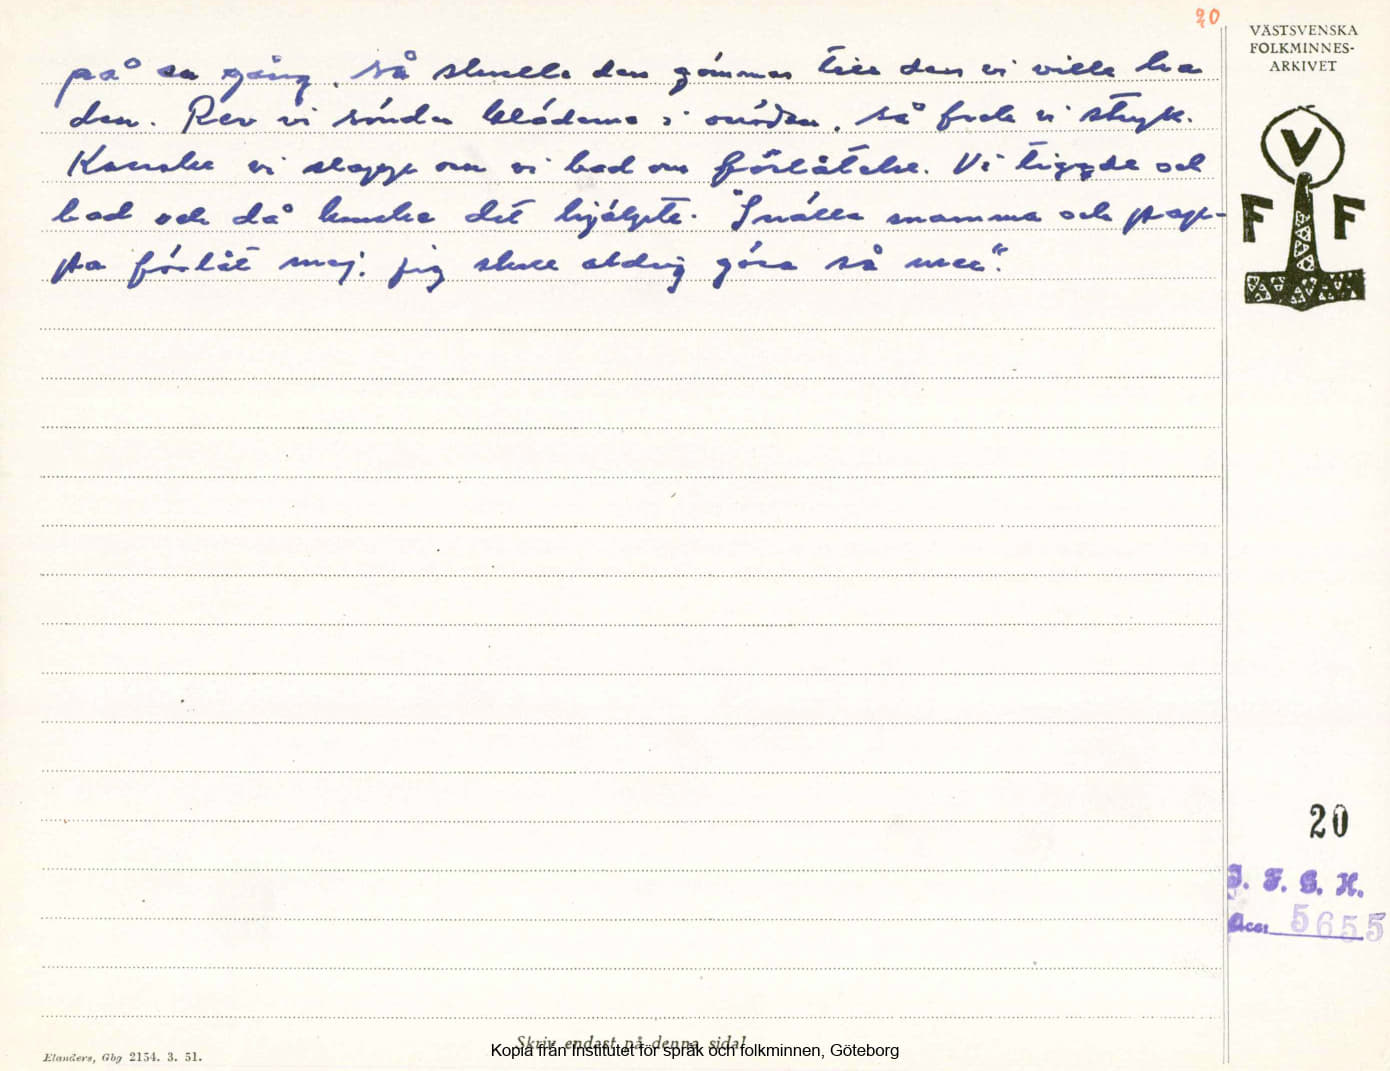 20
VÄSTSVENSKA
FOLKMINNES-
ARKIVET
V
F F
på en gång, så skulle den gömmas till den vi ville ha
den. Rev vi sönder kläderna i onödan, så fick vi stryk.
Kanske vi slapp om vi bad om förlåtelse. Vi tiggde och
bad och då kanske det hjälpte. "Snälla mamma och pap-
pa förlåt mej, jag skall aldrig göra så mer".
20
I. F. G. H.
Acc: 5655
Skriv endast på denna sida!
Kopia från Institutet för språk och folkminnen, Göteborg
Elanders, Gbg 2154. 3. 51.